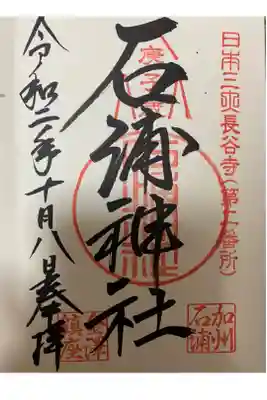 日本三所長谷寺(第二番所)
庚子
石浦神社
加州
石浦
金澤
鎮座
令和二年十月八日奉拝